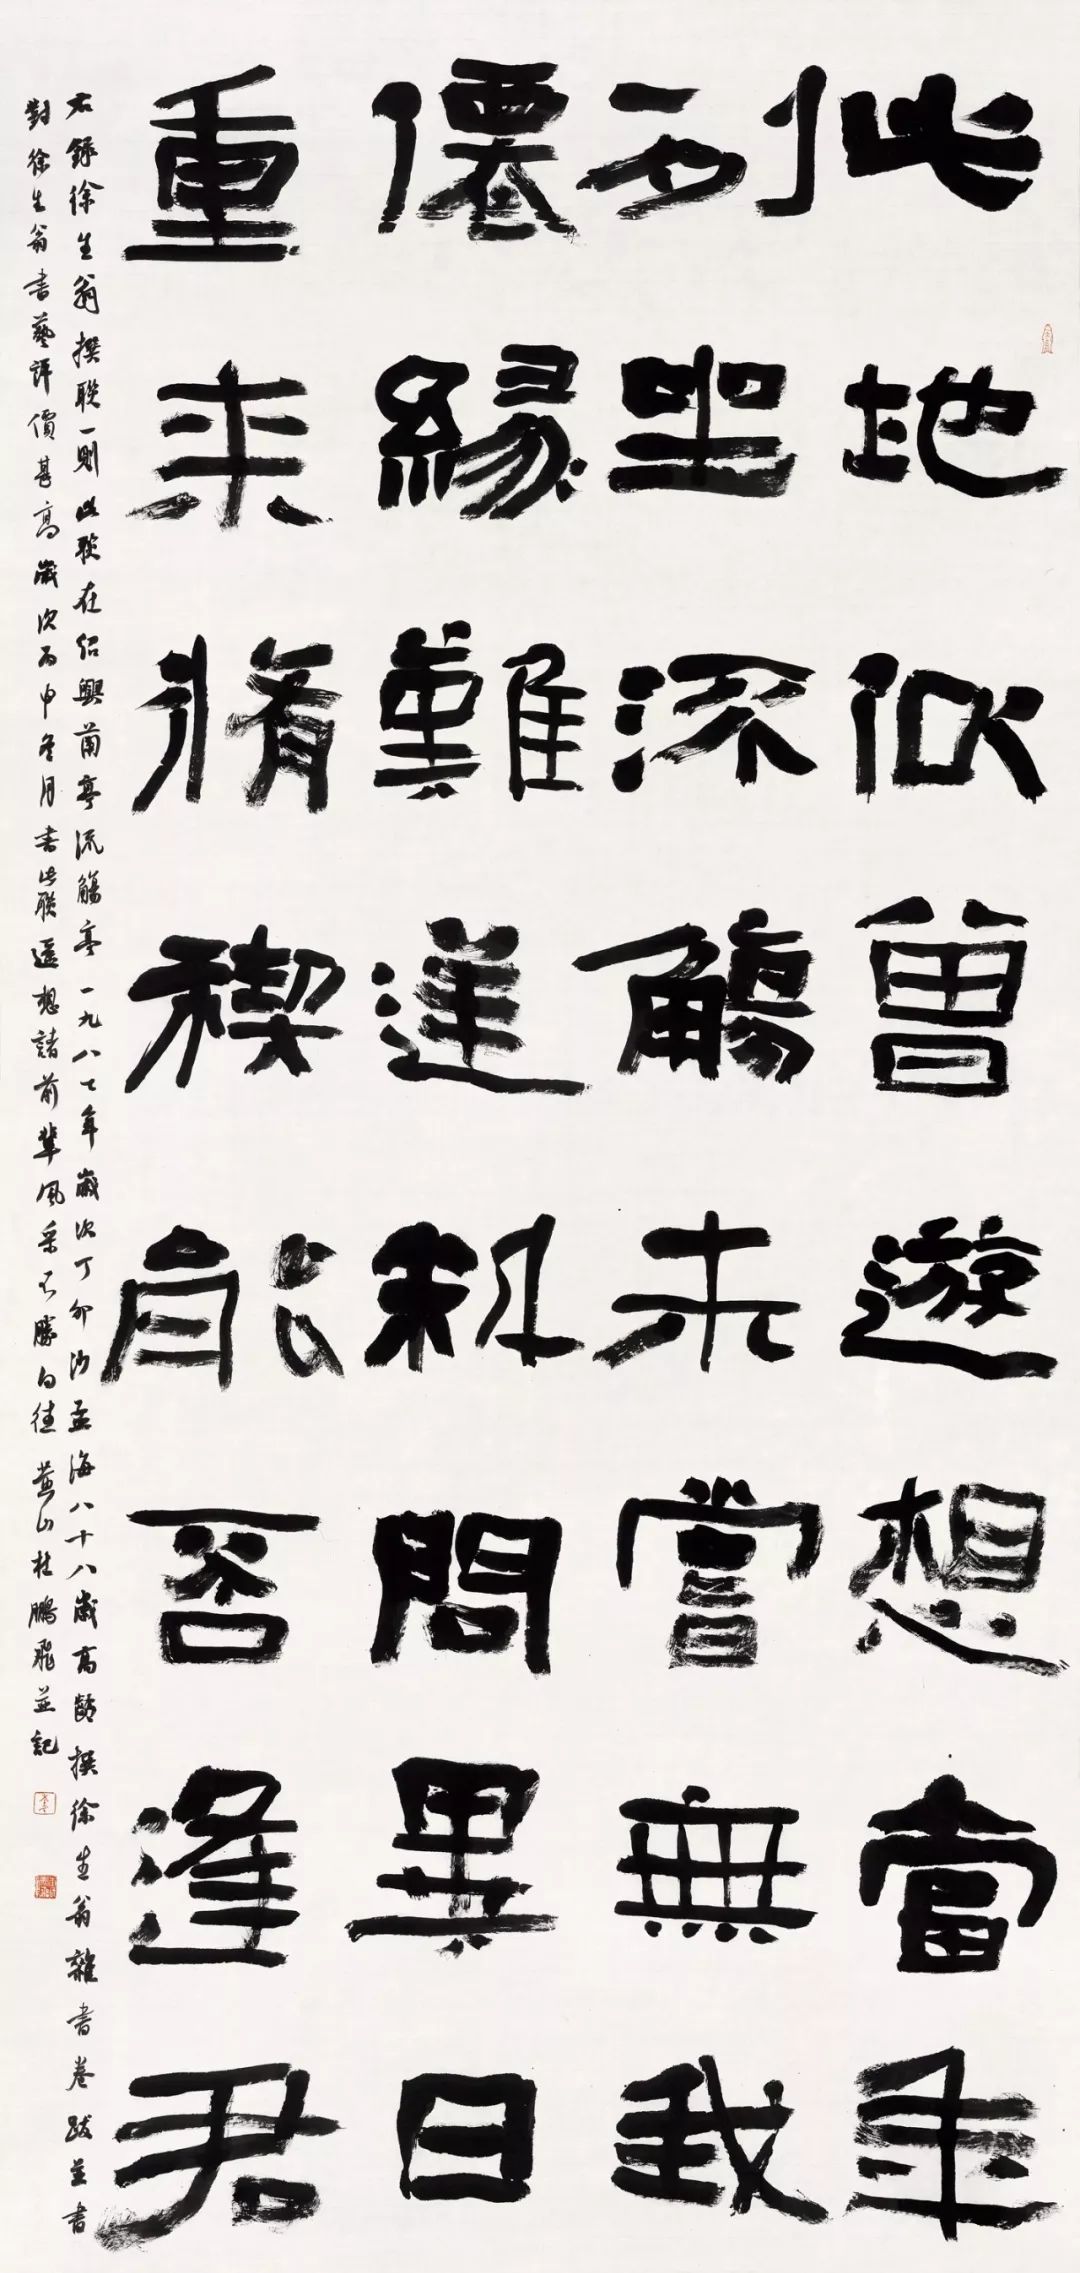 此地似曾遊想當年
列坐流觴未嘗無我
僊緣難逆料問異日
重來脩禊能否逢君
右録徐生翁撰聯一則此聯在紹興蘭亭流觴亭一九八七年歲次丁卯沙孟海八十八歲高齡撰徐生翁雜書卷跋並書
對徐生翁書藝評價甚高歲次丙申冬月書此聯遥想諸前輩風采不勝向往燕山杜鵬飛並記